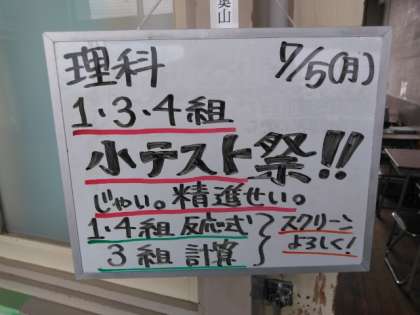 奥山
理科 7/5(月)
1・3・4組
小テスト祭!!
じゃい。精進せい。
1・4組 反応式
3組 計算
スクリーン
よろしく!